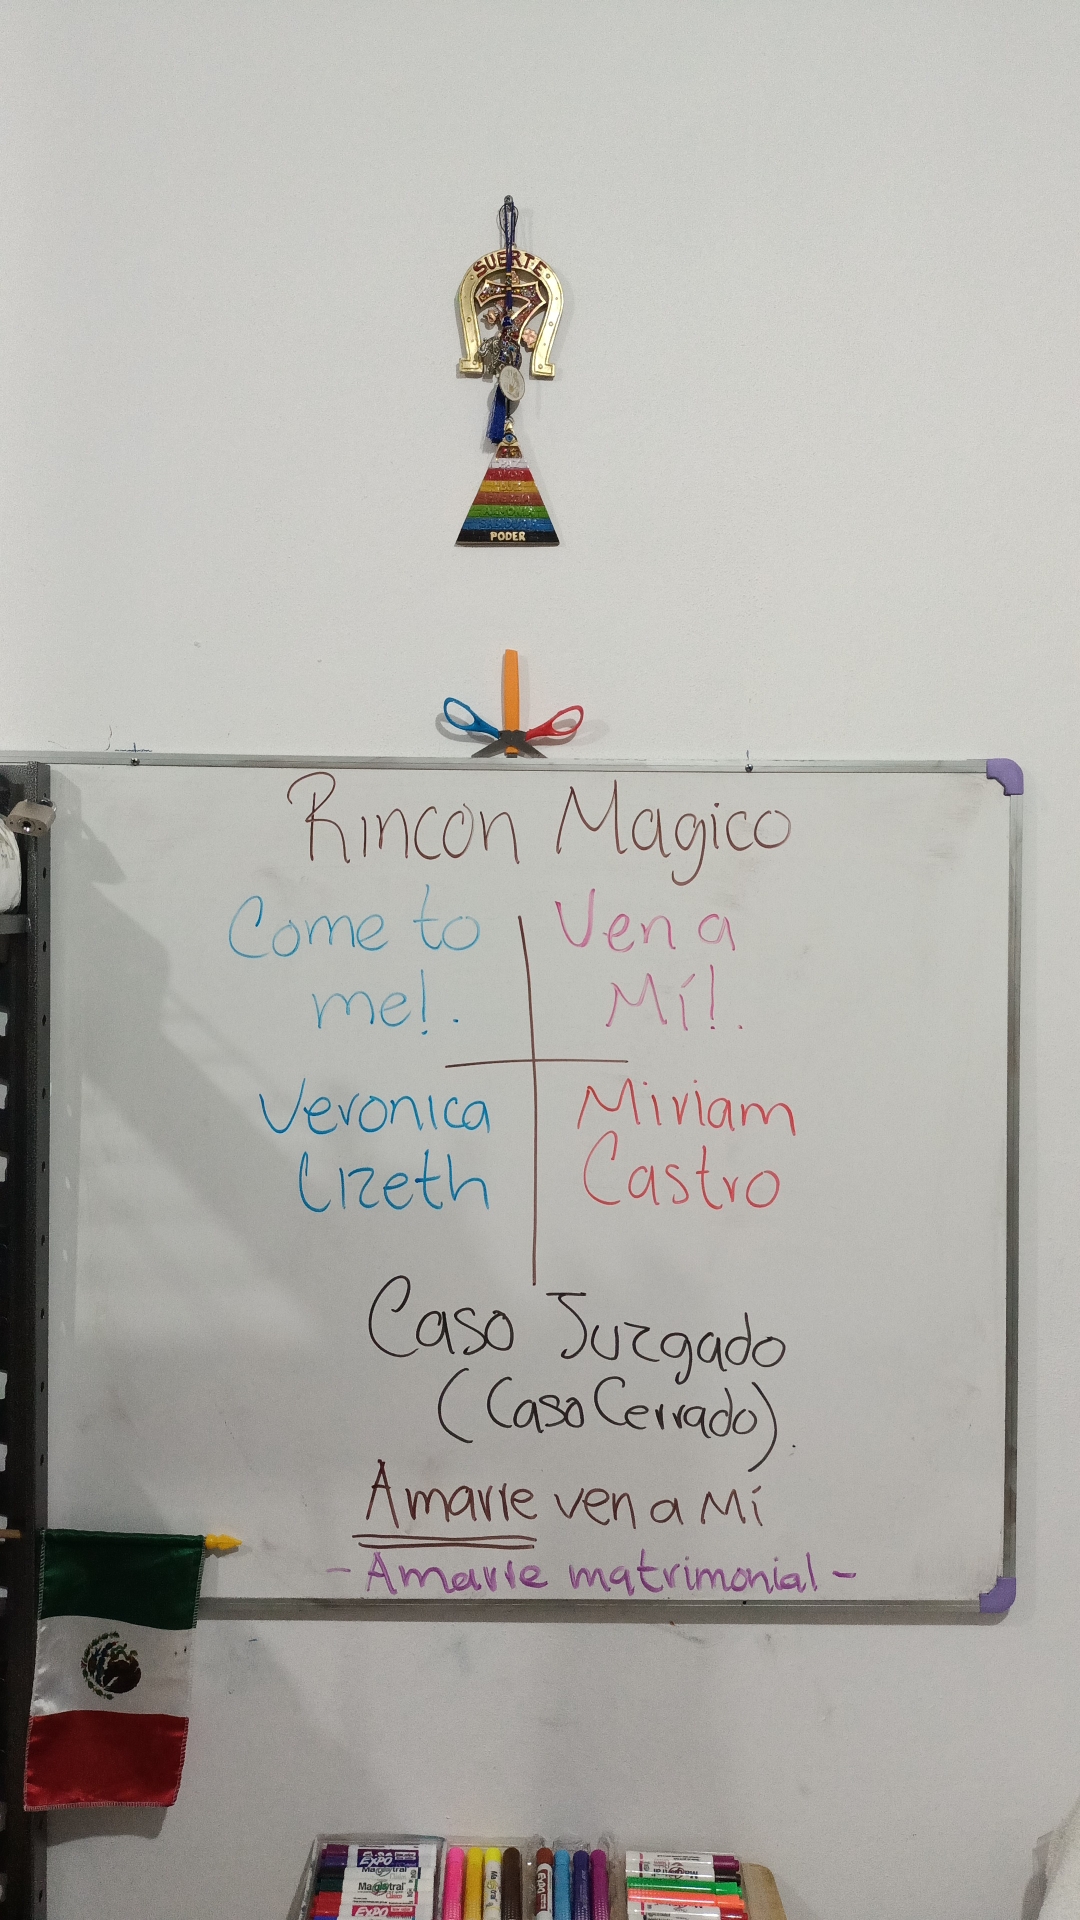 SUERTE
7
PODER
Rincon Magico
Come to
me!.
Ven a
Mí!.
Veronica
Lizeth
Miriam
Castro
Caso Juzgado
(Caso Cerrado).
Amarre ven a Mí
- Amarre matrimonial -
EXPO
Magistral
Magistral
EXPO